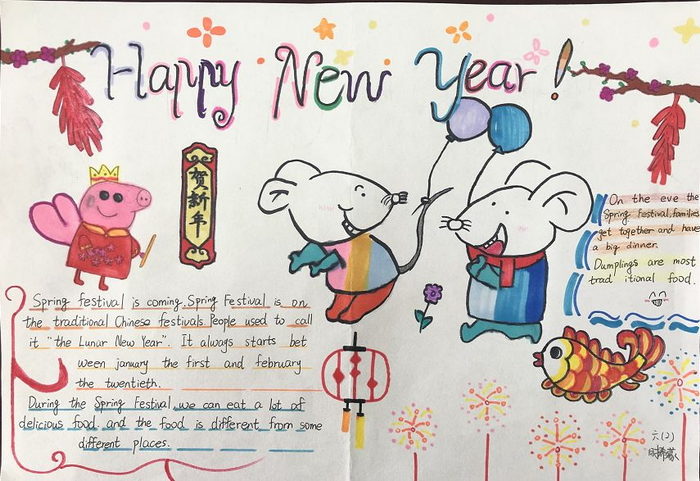 Happy New Year!
贺新年
Spring festival is coming. Spring Festival is on
the traditional Chinese festivals. People used to call
it "the Lunar New Year". It always starts bet
ween january the first and february
the twentieth.
During the Spring Festival, we can eat a lot of
delicious food. and the food is different from some
different places.
On the eve the
Spring Festival, families
get together and have
a big dinner.
Dumplings are most
trad itional food.
六(2)